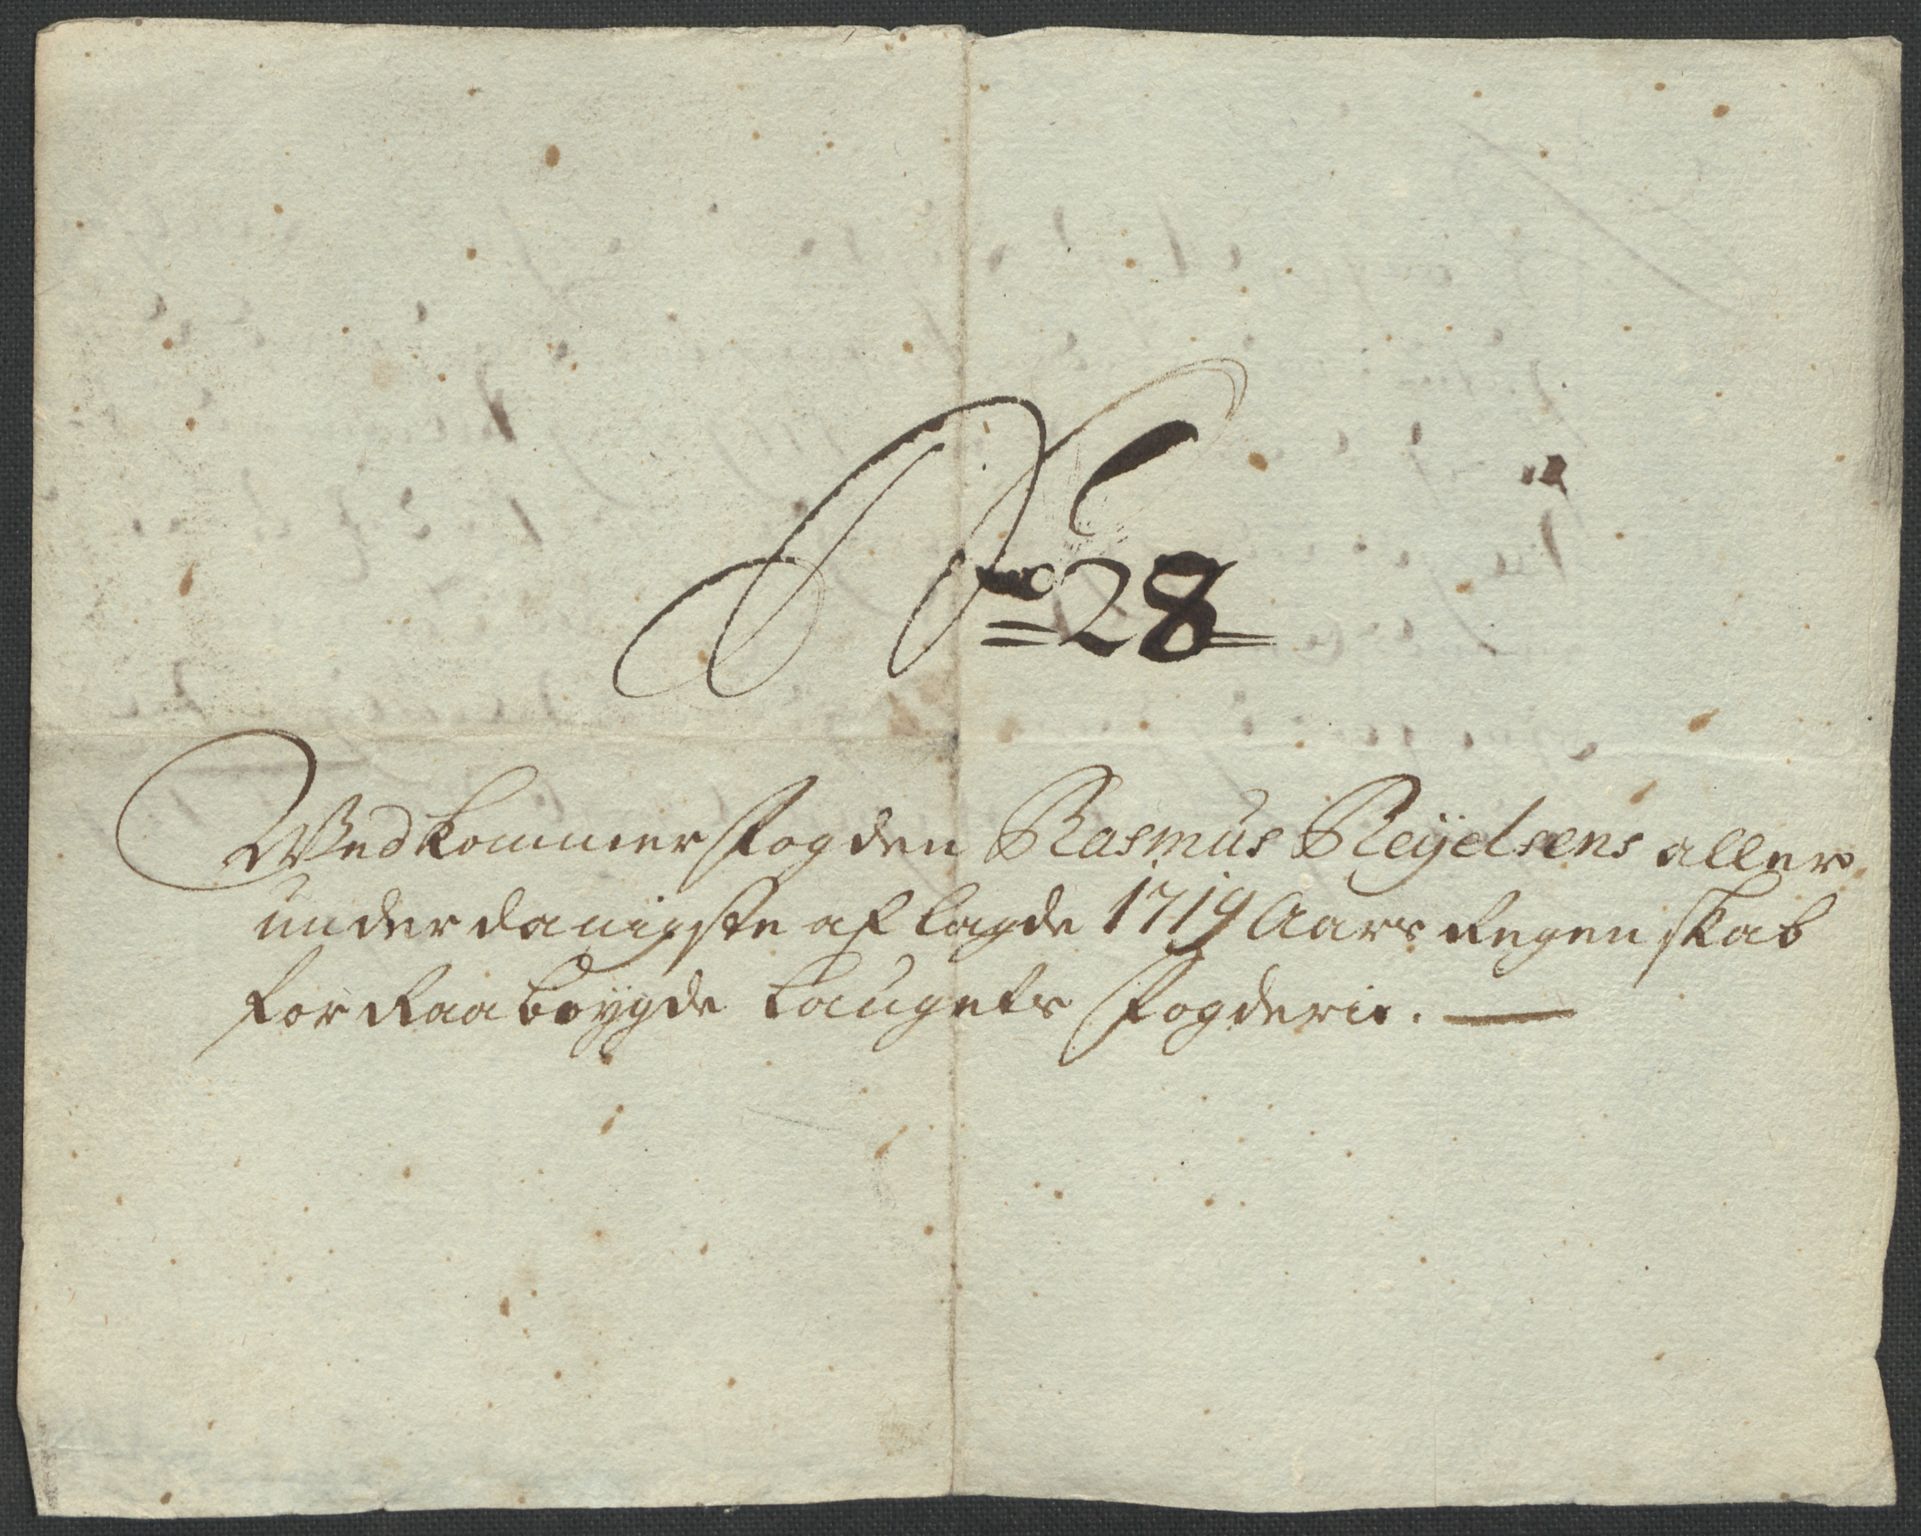 No 28
Vedkommer Fogden Rasmus Reijelsens aller
underdanigste aflagde 1719 Aars Regenskab
for Raabøygde Laugets Fogderie.